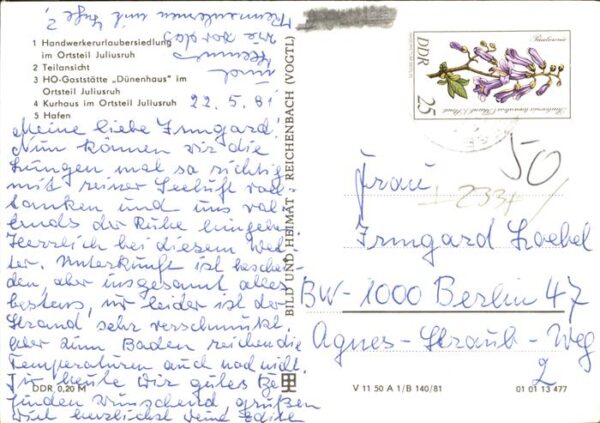 1 Handwerkerurlaubersiedlung
im Ortsteil Juliusruh
2 Teilansicht
3 HO-Gaststätte „Dünenhaus" im
Ortsteil Juliusruh
4 Kurhaus im Ortsteil Juliusruh
5 Hafen
22.5.81
Meine liebe Irmgard!
Nun können wir die
Lungen mal so richtig
mit reiner Seeluft voll-
tanken und uns vol-
lends der Ruhe hingeben.
Herrlich bei diesem Wet-
ter. Unterkunft ist beschei-
den, aber insgesamt alles
bestens, nur leider ist der
Strand sehr verschmutzt,
aber zum Baden reichen die
Temperaturen auch noch nicht.
Für heute Dir gutes Be-
finden wünschend grüßen
Dich herzlichst Deine Edith
und
wie vor das
Kennenlernen mit
DDR 0,20 M
BILD UND HEIMAT REICHENBACH (VOGTL)
Paulownia
DDR
25
50
Frau
Irmgard Loebel
BW-1000 Berlin 47
Agnes-Straub-Weg
2
V 11 50 A 1/B 140/81
01 01 13 477